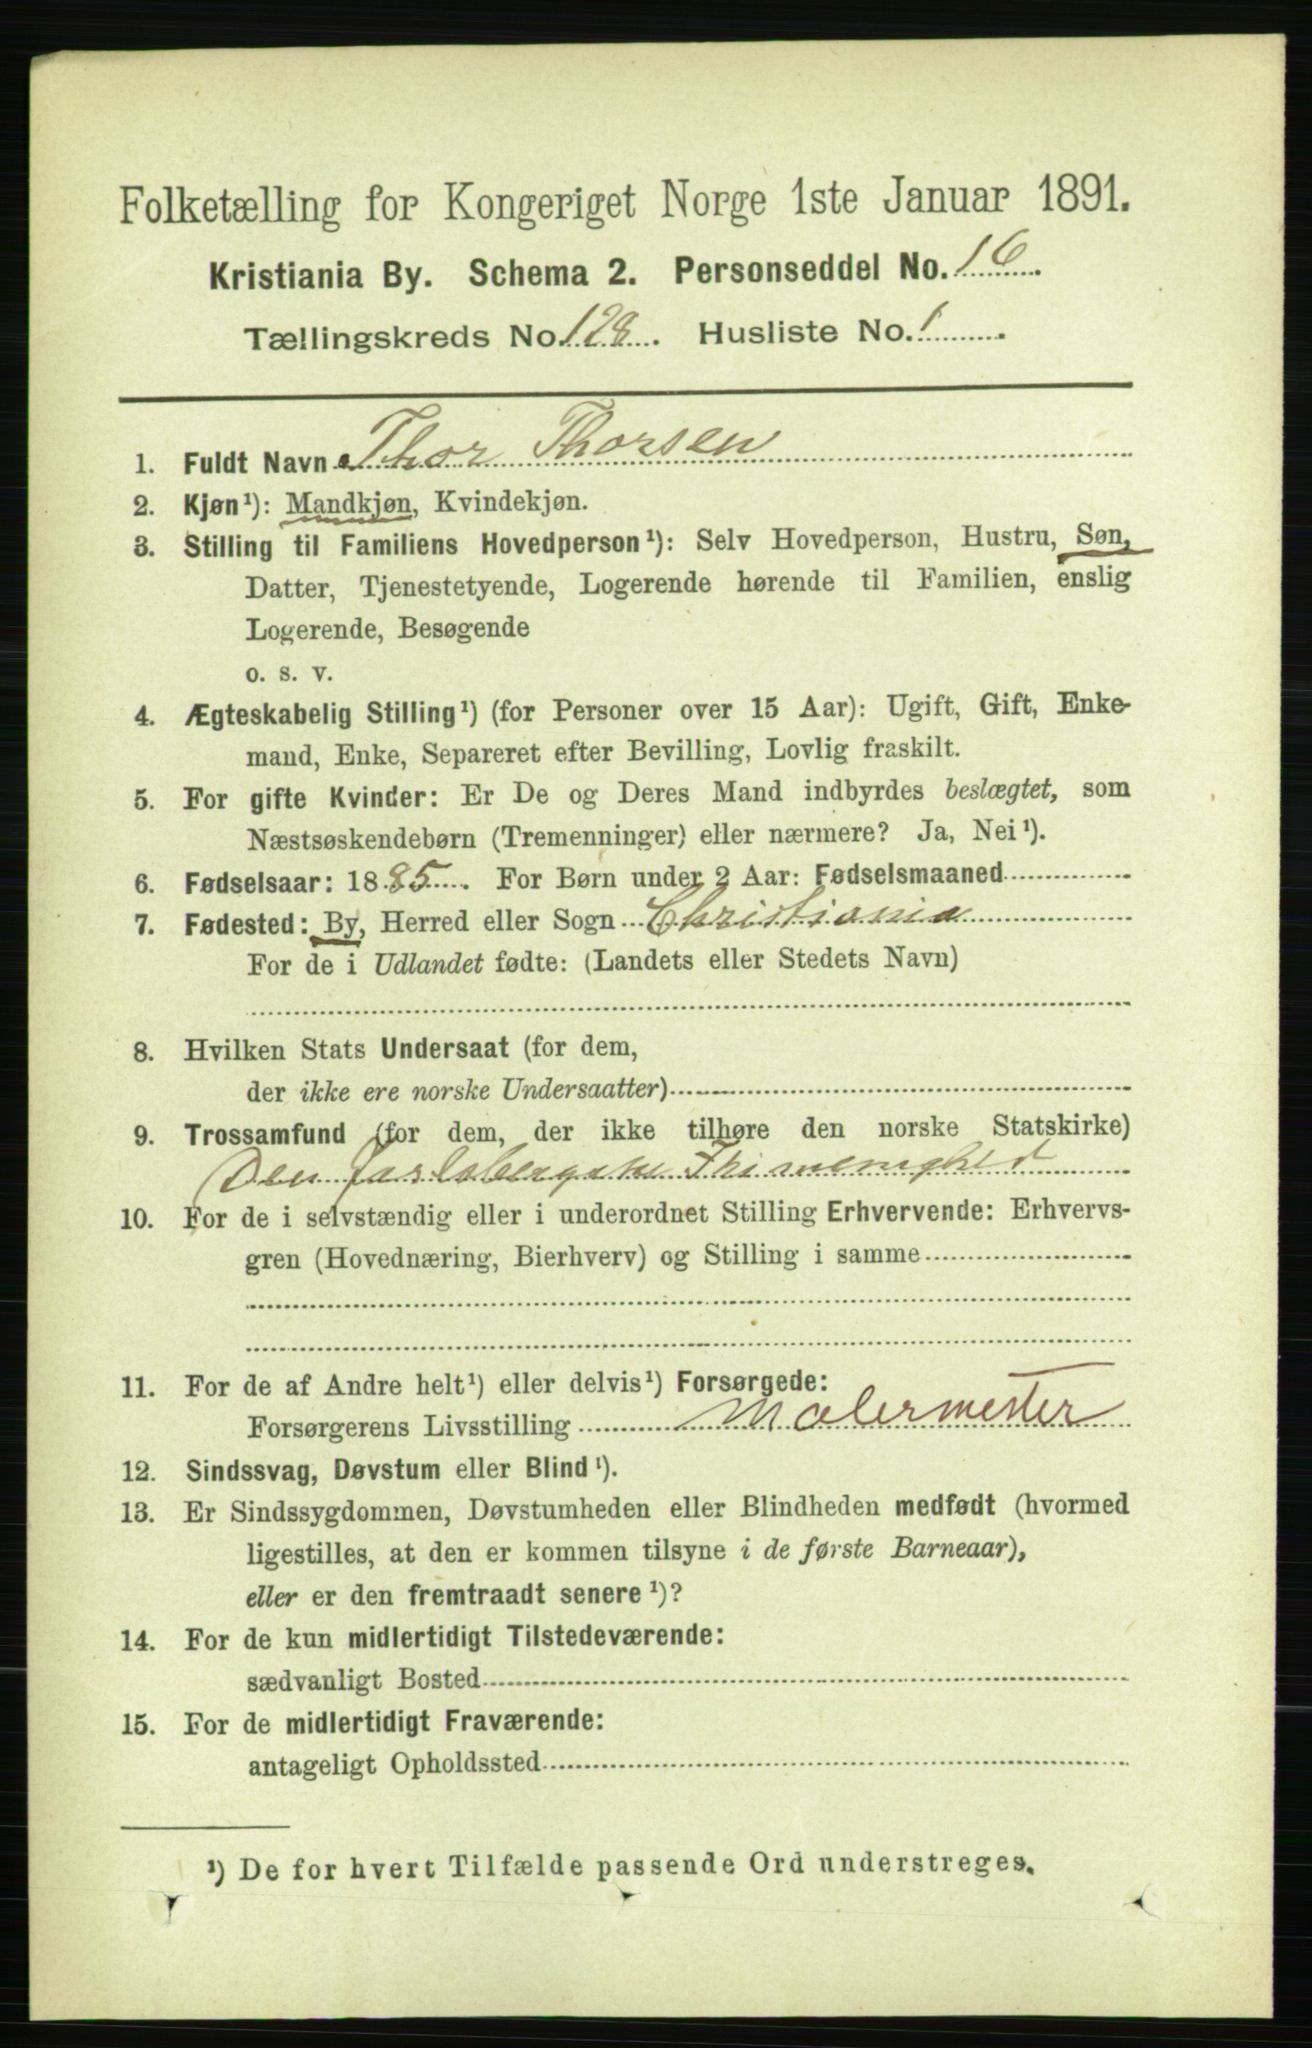 Folketælling for Kongeriget Norge 1ste Januar 1891.
Kristiania By. Schema 2. Personseddel No. 16.
Tællingskreds No. 128. Husliste No. 1.
1. Fuldt Navn Thor Thorsen
2. Kjøn¹): Mandkjøn, Kvindekjøn.
3. Stilling til Familiens Hovedperson¹): Selv Hovedperson, Hustru, Søn,
Datter, Tjenestetyende, Logerende hørende til Familien, enslig
Logerende, Besøgende
o. s. v.
4. Ægteskabelig Stilling¹) (for Personer over 15 Aar): Ugift, Gift, Enke-
mand, Enke, Separeret efter Bevilling, Lovlig fraskilt.
5. For gifte Kvinder: Er De og Deres Mand indbyrdes beslægtet, som
Næstsøskendebørn (Tremenninger) eller nærmere? Ja, Nei¹).
6. Fødselsaar: 1885. For Børn under 2 Aar: Fødselsmaaned
7. Fødested: By, Herred eller Sogn Christiania
For de i Udlandet fødte: (Landets eller Stedets Navn)
8. Hvilken Stats Undersaat (for dem,
der ikke ere norske Undersaatter)
9. Trossamfund (for dem, der ikke tilhøre den norske Statskirke)
Den Jarlsbergske Frimenighed
10. For de i selvstændig eller i underordnet Stilling Erhvervende: Erhvervs-
gren (Hovednæring, Bierhverv) og Stilling i samme
11. For de af Andre helt¹) eller delvis¹) Forsørgede:
Forsørgerens Livsstilling Malermester
12. Sindssvag, Døvstum eller Blind¹).
13. Er Sindssygdommen, Døvstumheden eller Blindheden medfødt (hvormed
ligestilles, at den er kommen tilsyne i de første Barneaar),
eller er den fremtraadt senere¹)?
14. For de kun midlertidigt Tilstedeværende:
sædvanligt Bosted
15. For de midlertidigt Fraværende:
antageligt Opholdssted
¹) De for hvert Tilfælde passende Ord understreges.